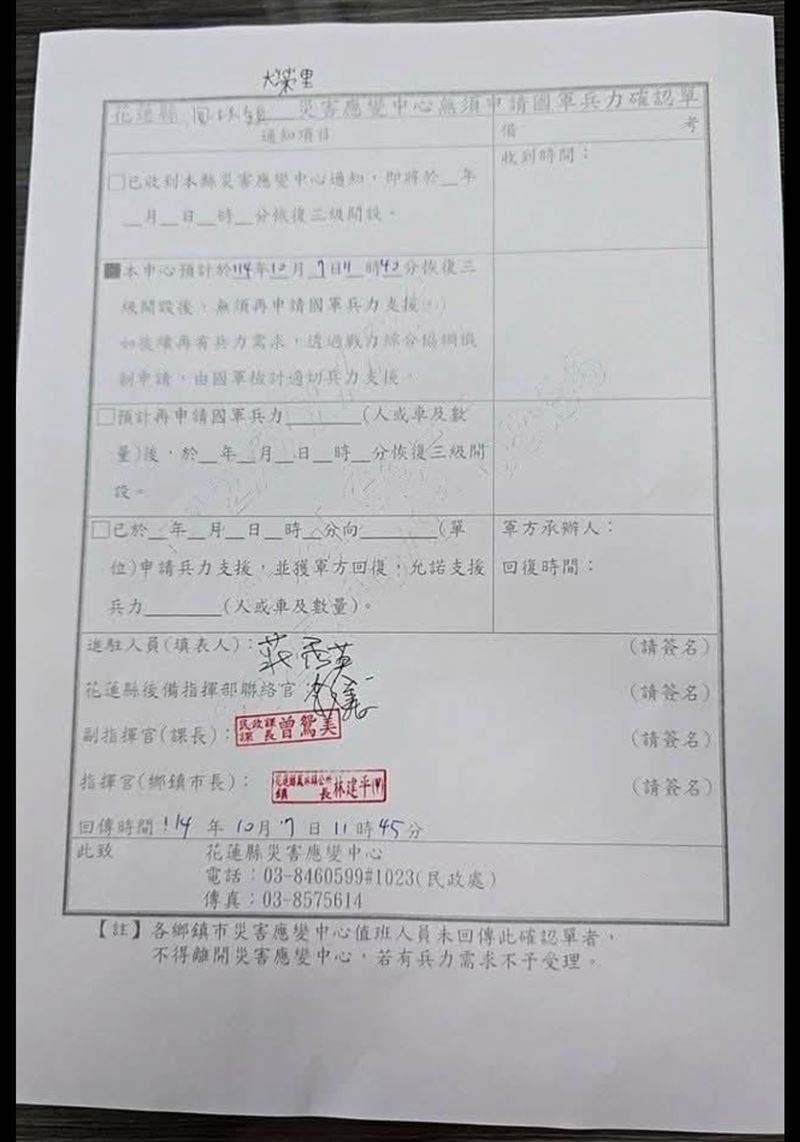 大榮里
花蓮縣 鳳林鎮 災害應變中心無須申請國軍兵力確認單
通知項目
備 考
□已收到本縣災害應變中心通知,即將於__年
__月__日__時__分恢復三級開設。
收到時間:
■本中心預計於114年10月7日11時40分恢復三
級開設後,無須再申請國軍兵力支援。
如後續再有兵力需求,透過戰力綜合協調機
制申請,由國軍檢討適切兵力支援。
□預計再申請國軍兵力________(人或車及數
量)後,於__年__月__日__時__分恢復三級開
設。
□已於__年__月__日__時__分向________(單
位)申請兵力支援,並獲軍方回復,允諾支援
兵力________(人或車及數量)。
軍方承辦人:
回復時間:
進駐人員(填表人): (請簽名)
花蓮縣後備指揮部聯絡官 (請簽名)
副指揮官(課長): 民政課課長 曾鴛美 (請簽名)
指揮官(鄉鎮市長): 花蓮縣鳳林鎮公所鎮長 林建平(甲) (請簽名)
回傳時間:114 年 10月 7 日 11 時 45 分
此致 花蓮縣災害應變中心
電話:03-8460599#1023(民政處)
傳真:03-8575614
【註】各鄉鎮市災害應變中心值班人員未回傳此確認單者,
不得離開災害應變中心,若有兵力需求不予受理。